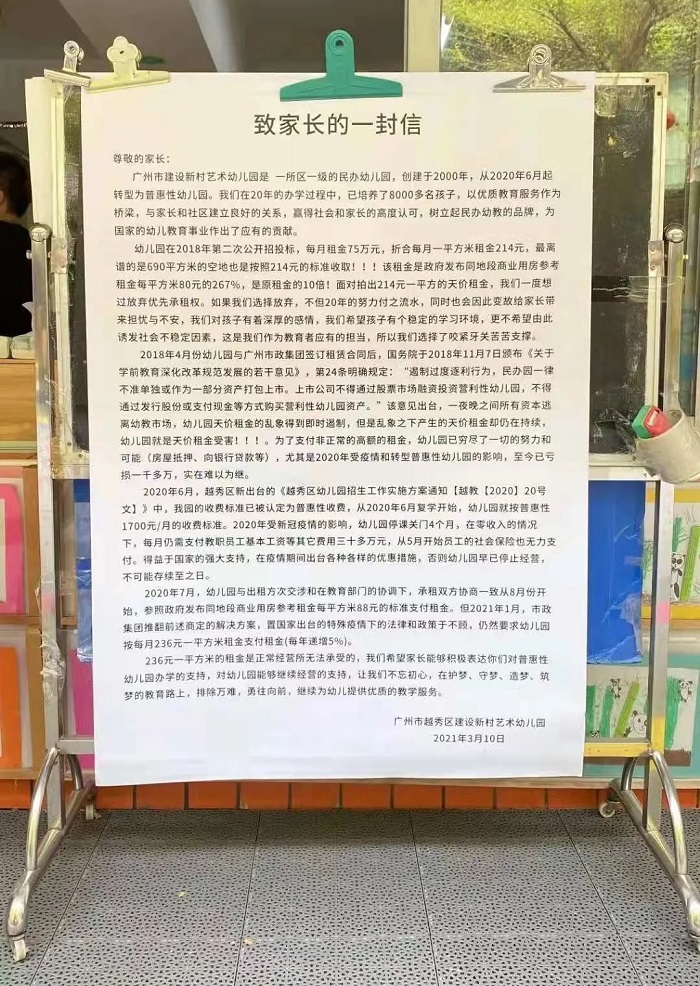 致家长的一封信
尊敬的家长：
广州市建设新村艺术幼儿园是 一所区一级的民办幼儿园，创建于2000年，从2020年6月起
转型为普惠性幼儿园。我们在20年的办学过程中，已培养了8000多名孩子，以优质教育服务作为
桥梁，与家长和社区建立良好的关系，赢得社会和家长的高度认可，树立起民办幼教的品牌，为
国家的幼儿教育事业作出了应有的贡献。
幼儿园在2018年第二次公开招投标，每月租金75万元，折合每月一平方米租金214元，最离
谱的是690平方米的空地也是按照214元的标准收取！！！该租金是政府发布同地段商业用房参考
租金每平方米80元的267%，是原租金的10倍！面对拍出214元一平方的天价租金，我们一度想
过放弃优先承租权。如果我们选择放弃，不但20年的努力付之流水，同时也会因此变故给家长带
来担忧与不安，我们对孩子有着深厚的感情，我们希望孩子有个稳定的学习环境，更不希望由此
诱发社会不稳定因素，这是我们作为教育者应有的担当，所以我们选择了咬紧牙关苦苦支撑。
2018年4月份幼儿园与广州市政集团签订租赁合同后，国务院于2018年11月7日颁布《关于
学前教育深化改革规范发展的若干意见》，第24条明确规定：“遏制过度逐利行为，民办园一律
不准单独或作为一部分资产打包上市。上市公司不得通过股票市场融资投资营利性幼儿园，不得
通过发行股份或支付现金等方式购买营利性幼儿园资产。”该意见出台，一夜之间所有资本逃
离幼教市场，幼儿园天价租金的乱象得到即时遏制，但是乱象之下产生的天价租金却仍在持续，
幼儿园就是天价租金受害！！！。为了支付非正常的高额的租金，幼儿园已穷尽了一切的努力和
可能（房屋抵押、向银行贷款等），尤其是2020年受疫情和转型普惠性幼儿园的影响，至今已亏
损一千多万，实在难以为继。
2020年6月，越秀区新出台的《越秀区幼儿园招生工作实施方案通知【越教【2020】20号
文】》中，我园的收费标准已被认定为普惠性收费，从2020年6月复学开始，幼儿园就按普惠性
1700元/月的收费标准。2020年受新冠疫情的影响，幼儿园停课关门4个月，在零收入的情况
下，每月仍需支付教职员工基本工资等其它费用三十多万元，从5月开始员工的社会保险也无力支
付。得益于国家的强大支持，在疫情期间出台各种各样的优惠措施，否则幼儿园早已停止经营，
不可能存续至之日。
2020年7月，幼儿园与出租方多次交涉和在教育部门的协调下，承租双方协商一致从8月份开
始，参照政府发布同地段商业用房参考租金每平方米88元的标准支付租金。但2021年1月，市政
集团推翻前述商定的解决方案，置国家出台的特殊疫情下的法律和政策于不顾，仍然要求幼儿园
按每月236元一平方米租金支付租金(每年递增5%)。
236元一平方米的租金是正常经营所无法承受的，我们希望家长能够积极表达你们对普惠性
幼儿园办学的支持，对幼儿园能够继续经营的支持，让我们不忘初心，在护梦、守梦、造梦、筑
梦的教育路上，排除万难，勇往向前，继续为幼儿提供优质的教学服务。
广州市越秀区建设新村艺术幼儿园
2021年3月10日